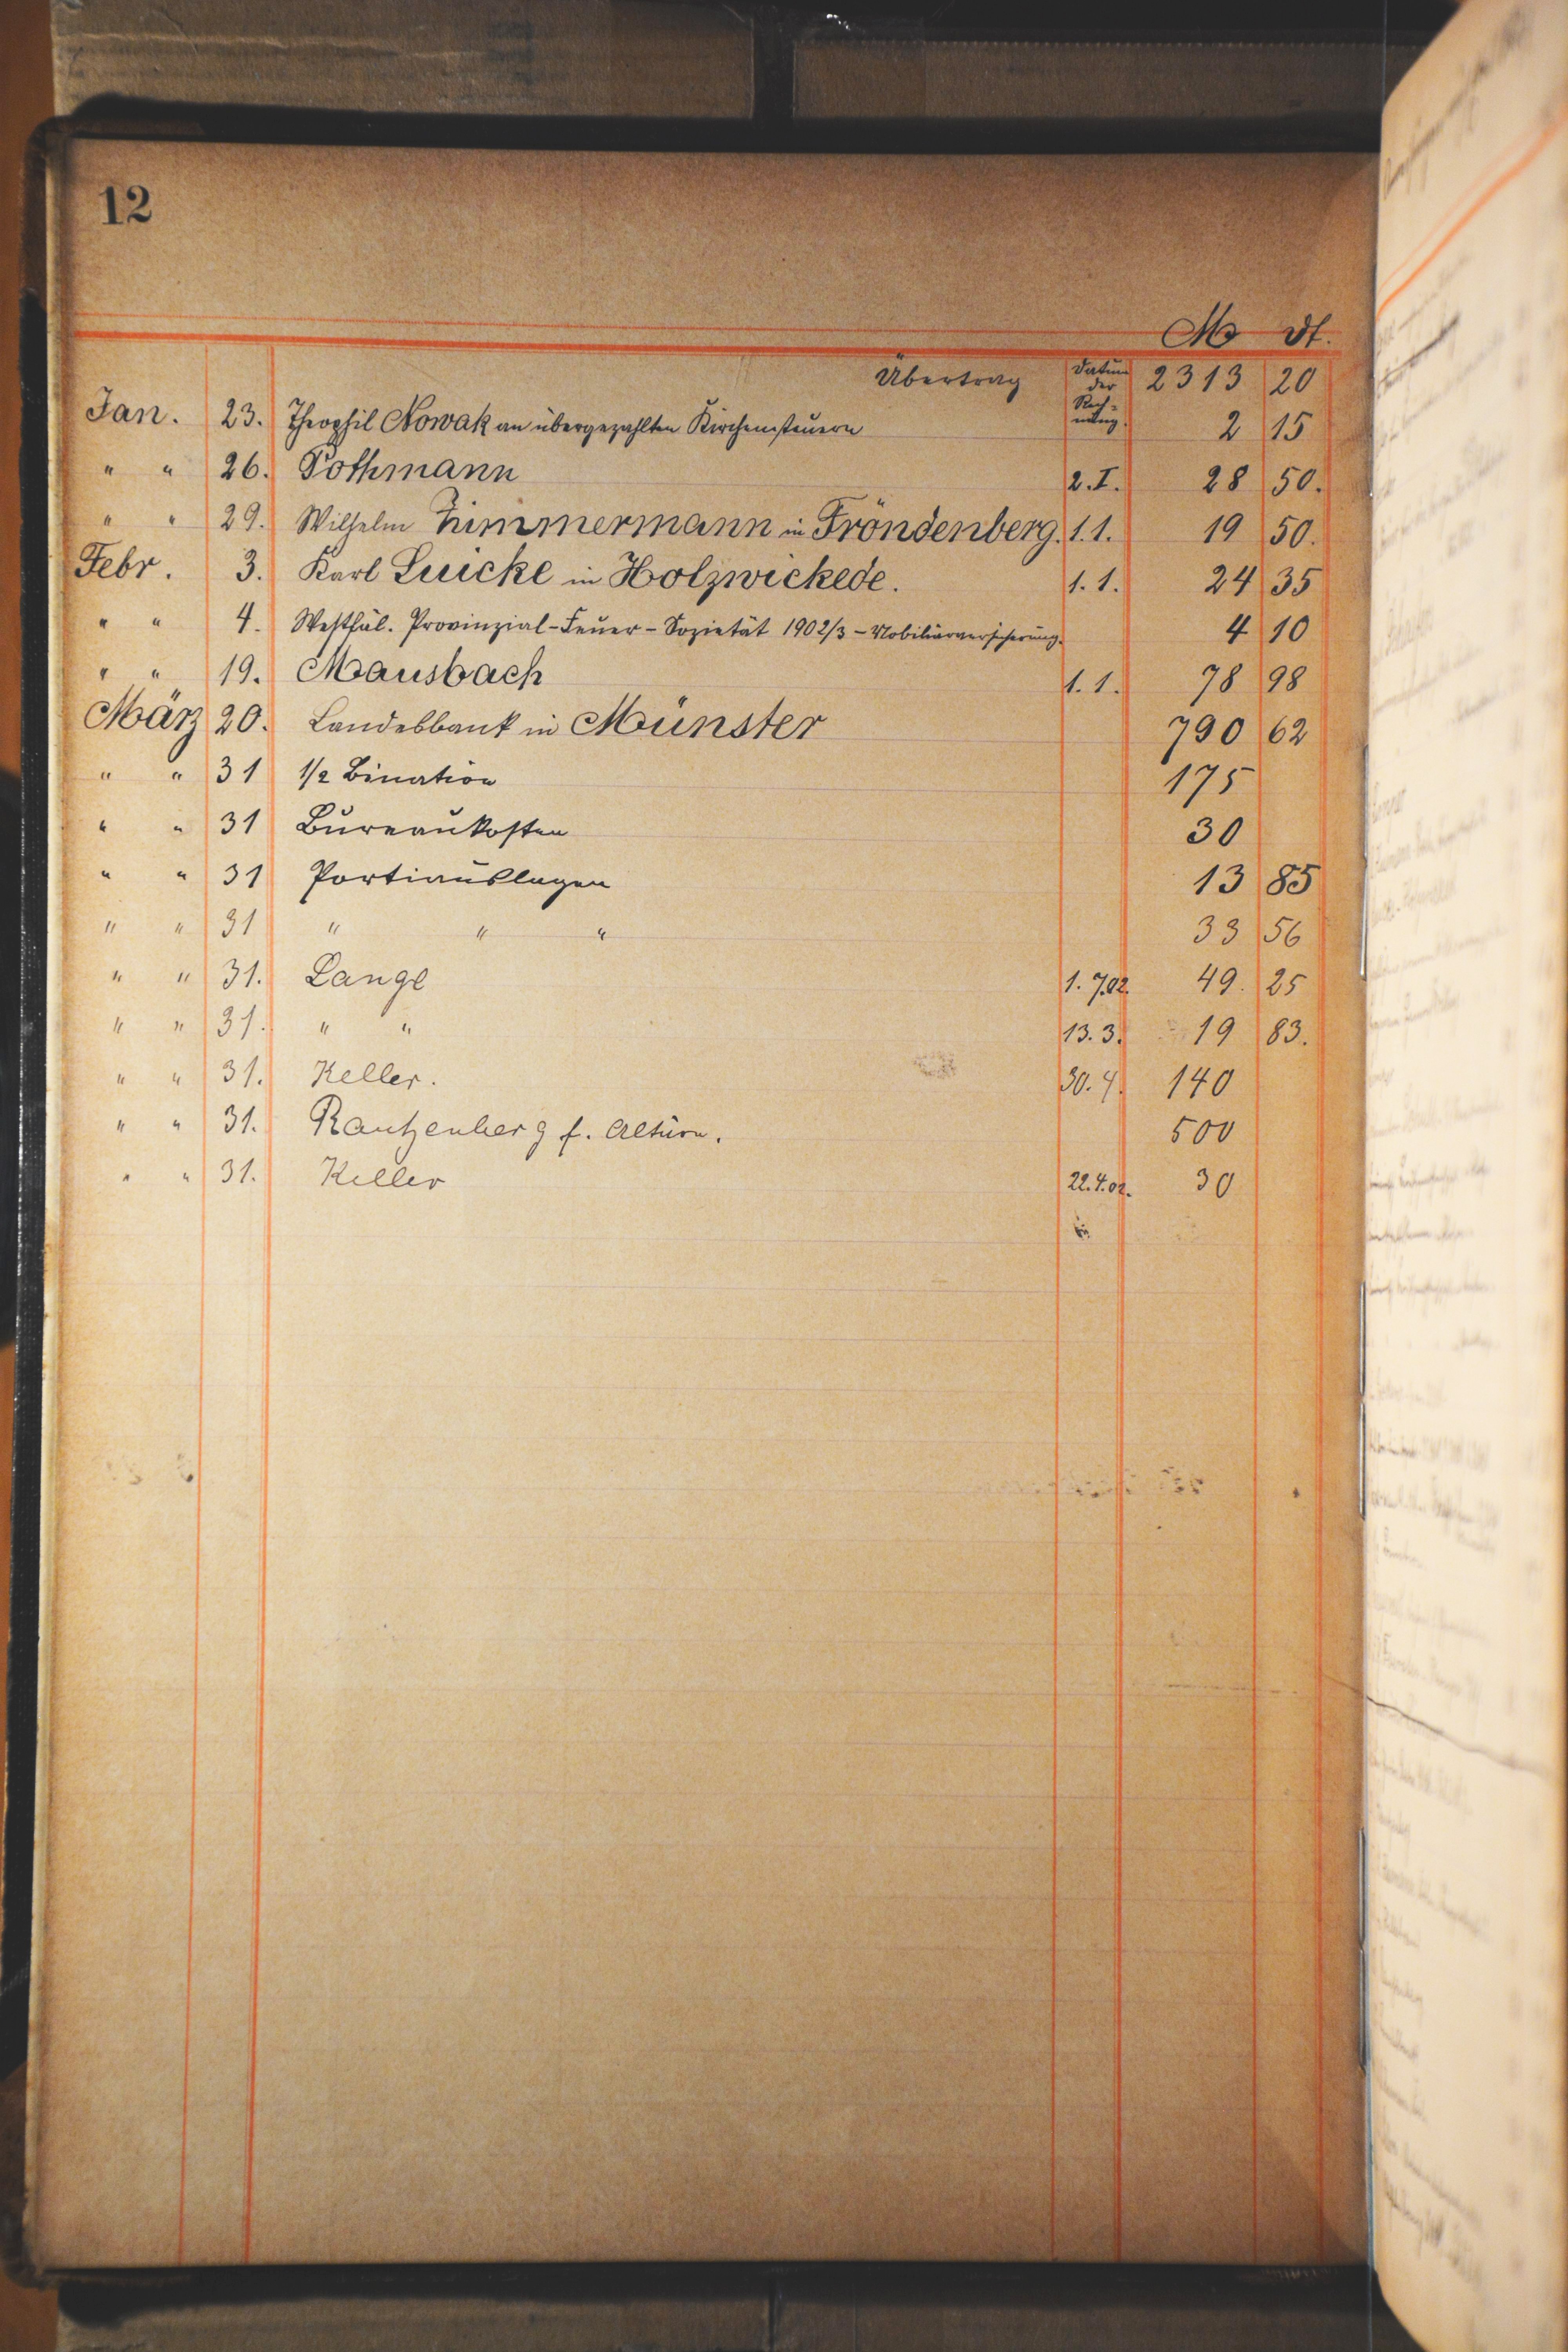 12
M Pf.
Übertrag Datum der Rechnung. 2313 20
Jan. 23. Theophil Nowak an übergezahlten Kirchensteuern 2 15
" " 26. Pothmann 2. I. 28 50.
" " 29. Wilhelm Zimmermann in Fröndenberg. 1. 1. 19 50.
Febr. 3. Karl Luicke in Holzwickede. 1. 1. 24 35
" " 4. Westfäl. Provinzial-Feuer-Sozietät 1902/3 - Mobiliarversicherung. 4 10
" " 19. Mausbach 1. 1. 78 98
März 20. Landesbank in Münster 790 62
" " 31 1/2 Bination 175
" " 31 Bureaukosten 30
" " 31 Portiauslagen 13 85
" " 31 " " " 33 56
" " 31. Lange 1. 7.02. 49. 25
" " 31. " " 13. 3. 19 83.
" " 31. Keller. 30. 4. 140
" " 31. Rautzenberg f. 500
" " 31. Keller 22.4.02. 30